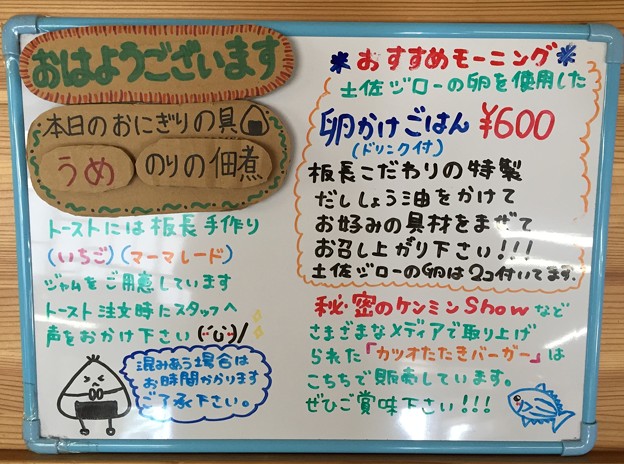 おはようございます
本日のおにぎりの具
うめ
のりの佃煮
トーストには板長手作り
(いちご)(マーマレード)
ジャムをご用意しています
トースト注文時にスタッフへ
声をおかけ下さい
混みあう場合は
お時間かかります
ご了承下さい。
*おすすめモーニング*
土佐ヅローの卵を使用した
卵かけごはん ¥600
(ドリンク付)
板長こだわりの特製
だししょう油をかけて
お好みの具材をまぜて
お召し上がり下さい!!!
土佐ヅローの卵は2コ付いてます。
秘・密のケンミンShowなど
さまざまなメディアで取り上げ
られた「カツオたたきバーガー」は
こちらで販売しています。
ぜひご賞味下さい!!!